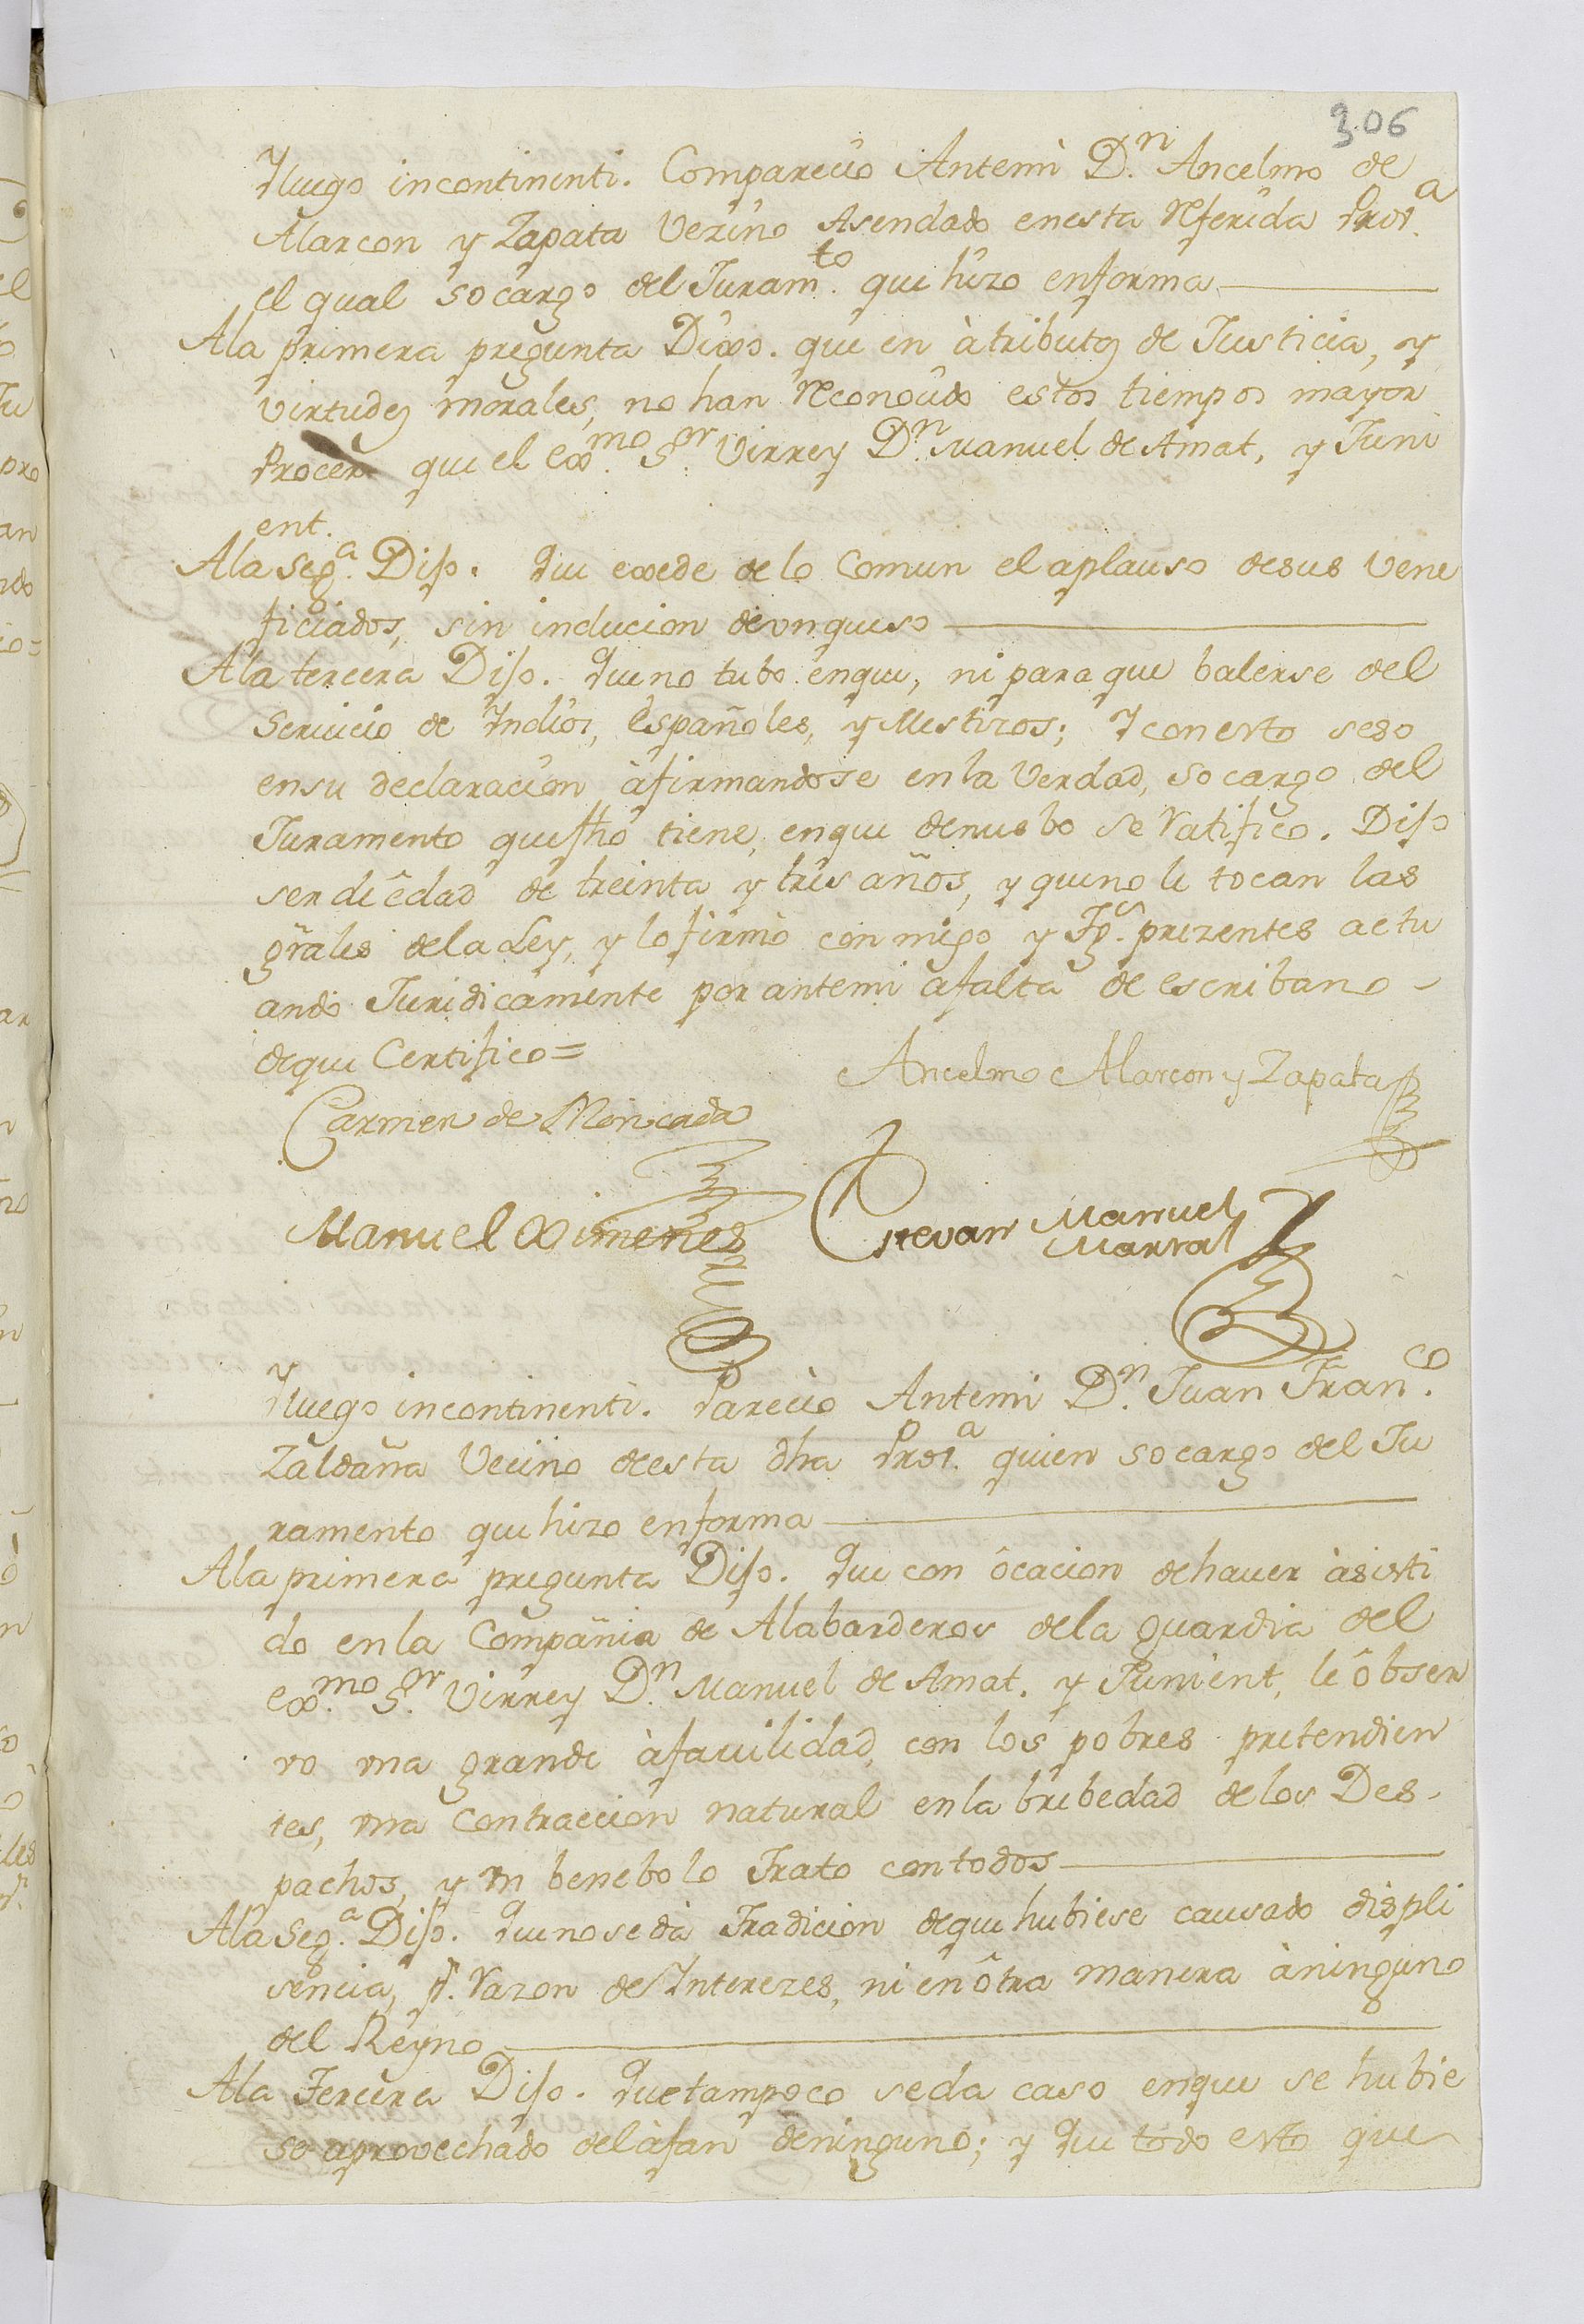 306
Yluego incontinenti. Comparecio Antemi D.n Ancelmo de
Alarcon y Zapata Vezino Asendado enesta referida Prov.a
el qual socargo del Juram.to que hizo enforma
Ala primera pregunta Dixo. que en àtributos de Justicia, y
virtudes morales, no han reconocido estos tiempos mayor
Procer que el Exmo. S.or Virrey D.n Manuel de Amat, y Juni
ent.
Ala Seg.a Dijo. Que exede de lo Comun el aplauso desus Vene
ficiados, sin inducion de
Ala tercera Dijo. Que no tubo enque, ni para que balerse del
Servicio de Yndios, Españoles, y Mestizos; Y conesto seso
ensu declaracion àfirmandose en la Verdad, socargo del
Juramento que fho tiene, enque denuebo se ratifico. Dijo
ser de êdad de treinta y tres años, y que no le tocan las
grales dela Ley, y lo firmò con migo y Tg.s prezentes actu
ando Juridicamente por antemi afalta de escribano
deque Certifico=
Ancelmo Alarcon y Zapata
Carmen de Moncada
Manuel Ximenes
Estevan Manuel
Marval
Yluego incontinenti. Parecio Antemi D.n Juan Fran.co
Zaldaña Vecino deesta dha Prov.a quien socargo del Ju
ramento que hizo enforma
Ala primera pregunta Dijo. Que con ôcacion dehaver àsisti
do en la Compañia de Alabarderos dela guardia del
exmo. S.or Virrey D.n Manuel de Amat. y Junient, le ôbser
vo una grande àfavilidad, con los pobres pretendien
tes, una contraccion natural en la brebedad de los Des-
pachos, y un benebolo Trato contodos
Ala Seg.a Dijo. Que no se dà Tradicion deque hubiese causado displi
sencia, p.r razon de Yntereres, ni en ôtra manera àninguno
del Reyno
Ala Tercera Dijo. Que tampoco se da caso enque se hubie
se aprovechado del àfan deninguno; y que todo esto que